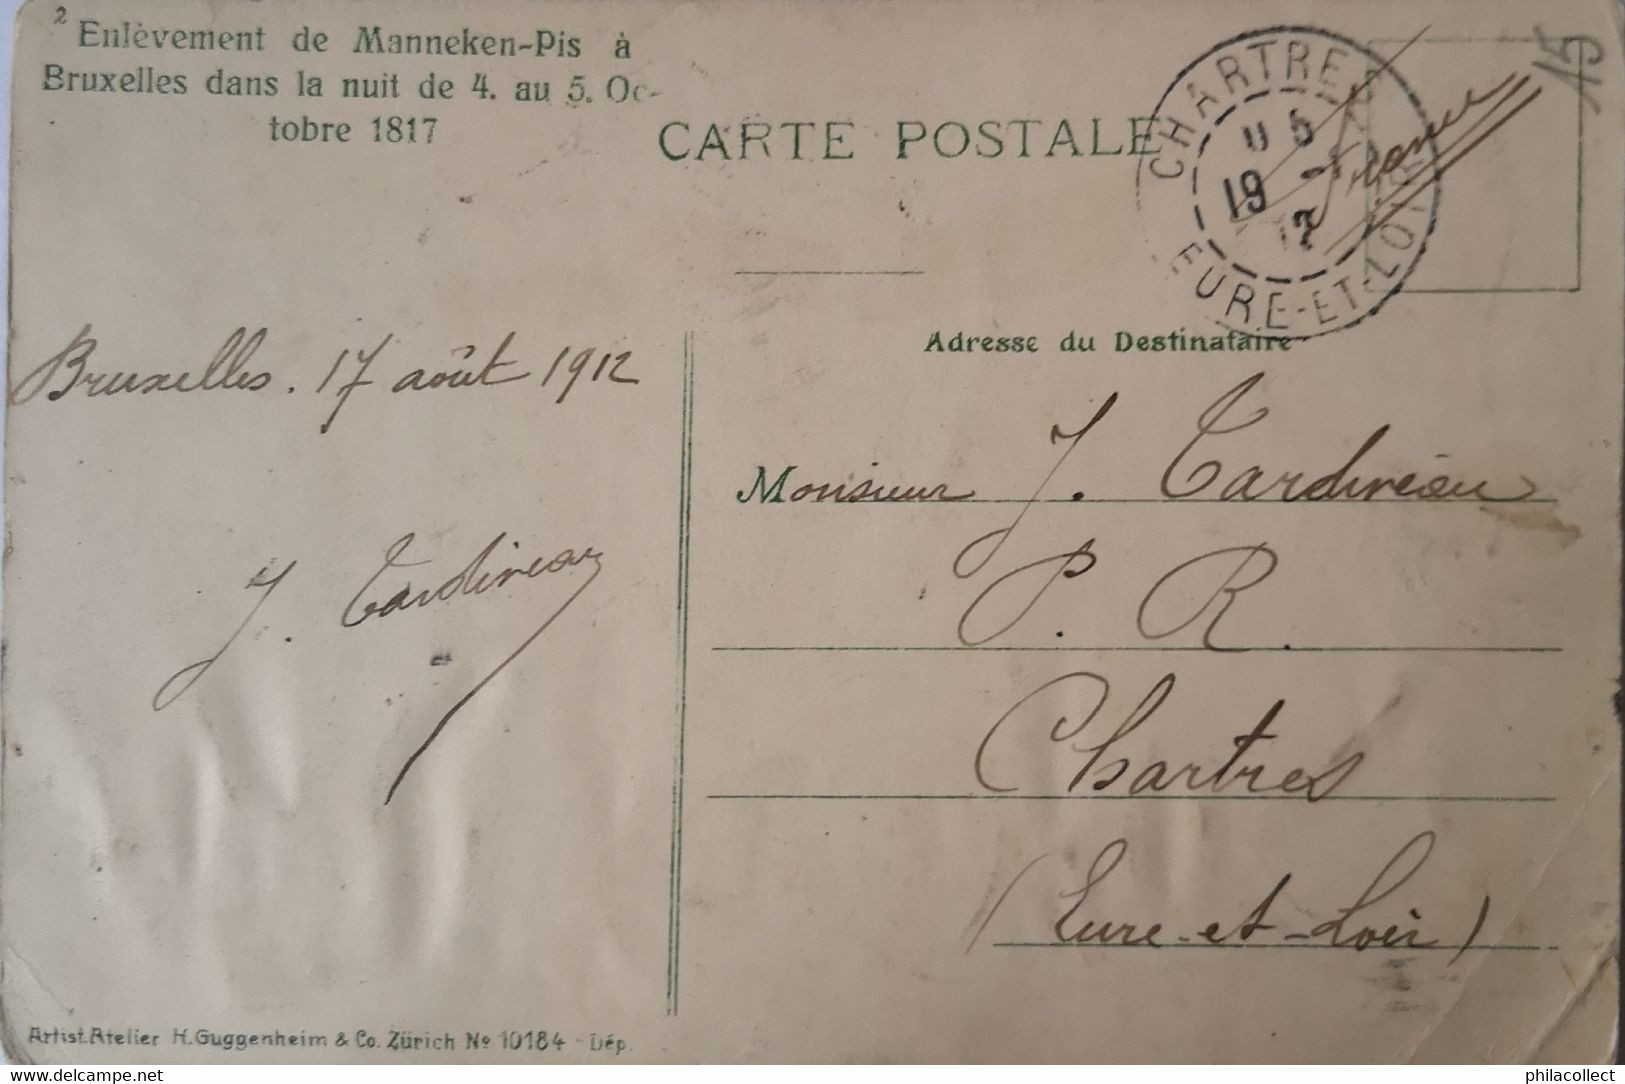 2
Enlèvement de Manneken-Pis à
Bruxelles dans la nuit de 4. au 5. Oc-
tobre 1817
CARTE POSTALE
CHARTRES
19
EURE-ET-LOIR
France
Adresse du Destinataire
Bruxelles. 17 août 1912
J. Tardiveau
Monsieur J. Tardiveau
P. R.
Chartres
(Eure-et-Loir)
Artist. Atelier H. Guggenheim & Co. Zürich No 10184 - Dép.
delcampe.net
philacollect